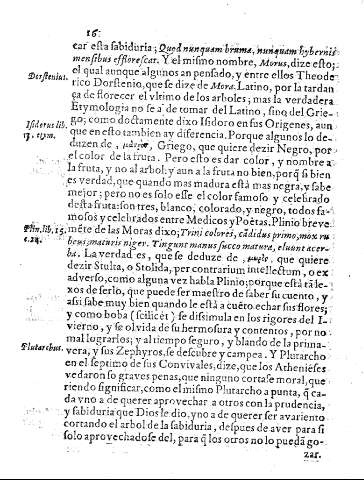 16.
car esta sabiduria; Quod nunquam brumæ, nunquam hybernis
mensibus efflorescat. Y el mismo nombre, Morus, dize esto;
Dorstenius. el qual aunque algunos an pensado, y entre ellos Theode
rico Dorstenio, que se dize de Mora. Latino, por la tardan
ça de florecer el vltimo de los arboles; mas la verdadera
Etymologia no se à de tomar del Latino, sino del Grie-
Isidorus lib. go; como doctamente dixo Isidoro en sus Origenes, aun
que en esto tambien ay diferencia. Porque algunos lo de-
duzen de, Griego, que quiere dezir Negro, por
el color de la fruta. Pero esto es dar color, y nombre a
la fruta, y no al arbol; y aun a la fruta no bien, porq̃ si bien
es verdad, que quando mas madura està mas negra, y sabe
mejor; pero no es solo esse el color famoso y celebrado
desta fruta: son tres, blanco, colorado, y negro, todos fa-
mosos y celebrados entre Medicos y Poetas. Plinio breve
Plin. lib. 15. mẽte de las Moras dixo; Trini colores, cãdidus primo, mox ru
c. 24. beus; maturis niger. Tingunt manus succo maturæ, eluunt acer-
ba. La verdad es, que se deduze de, que quiere
dezir Stulta, o Stolida, per contrarium intellectum, o ex
adverso, como alguna vez habla Plinio; porque està tã le-
xos de serlo, que puede ser maestro de saber su cuento, y
assi sabe muy bien quando le està a cuẽto echar sus flores;
y como boba (scilicèt) se dissimula en los rigores del I-
vierno, y se olvida de su hermosura y contentos, por no
mal lograrlos; y al tiempo seguro, y blando de la prima-
Plutarchus. vera, y sus Zephyros, se descubre y campea. Y Plutarcho
en el septimo de sus Convivales, dize, que los Athenieses
vedaron so graves penas, que ninguno cortase moral, que
riendo significar, como el mismo Plutarcho a punta, q̃ ca-
da vno a de querer aprovechar a otros con la prudencia,
y sabiduria que Dios le dio, y no a de querer ser avariento
cortando el arbol de la sabiduria, despues de aver para si
solo aprovechadose del, para q̃ los otros no lo puedã go-
zar.